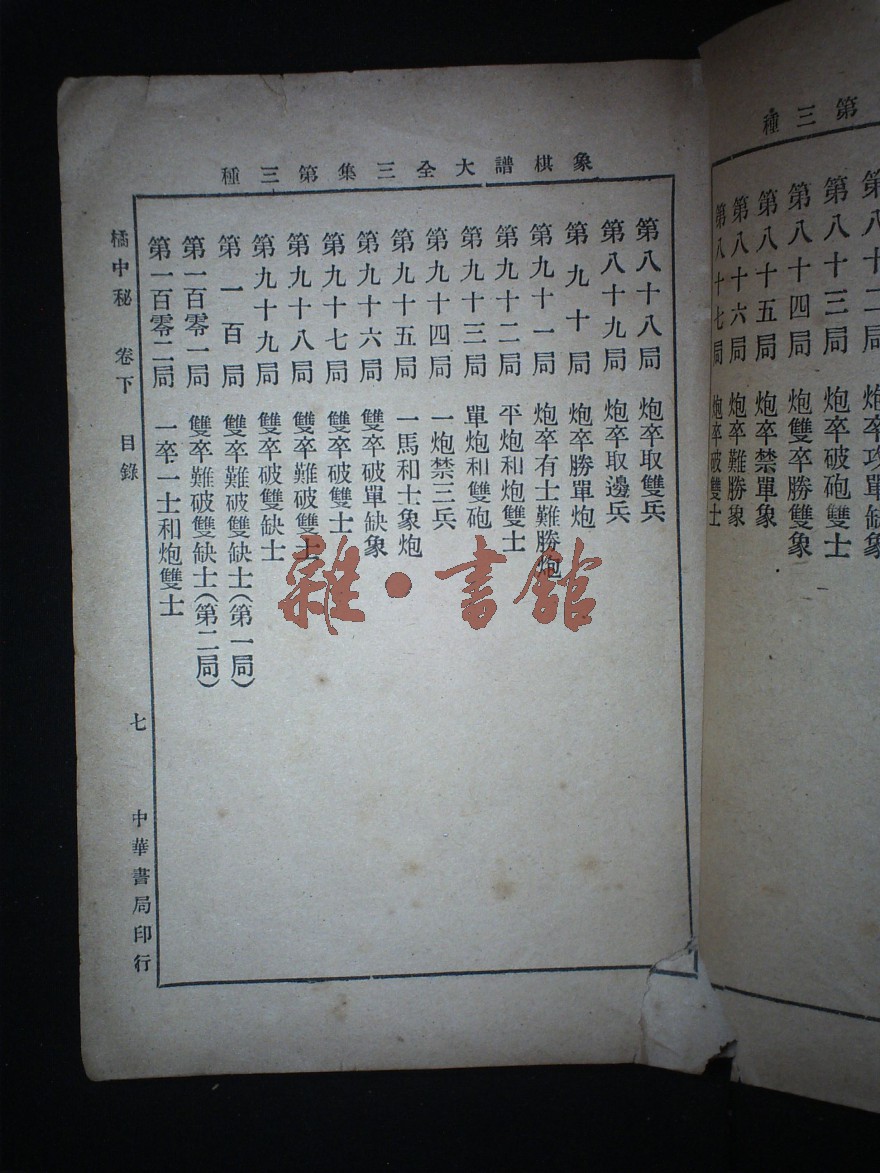 第三種
第八十二局 炮卒攻單缺象
第八十三局 炮卒破砲雙士
第八十四局 炮雙卒勝雙象
第八十五局 炮卒禁單象
第八十六局 炮卒難勝象
第八十七局 炮卒破雙士
象棋譜大全三集第三種
第八十八局 炮卒取雙兵
第八十九局 炮卒取邊兵
第九十局 炮卒勝單炮
第九十一局 炮卒有士難勝炮
第九十二局 平炮和炮雙士
第九十三局 單炮和雙砲
第九十四局 一炮禁三兵
第九十五局 一馬和士象炮
第九十六局 雙卒破單缺象
第九十七局 雙卒破雙士
第九十八局 雙卒難破雙士
第九十九局 雙卒破雙缺士
第一百局 雙卒難破雙缺士(第一局)
第一百零一局 雙卒難破雙缺士(第二局)
第一百零二局 一卒一士和炮雙士
橘中秘 卷下 目錄
七
中華書局印行
雜·書館